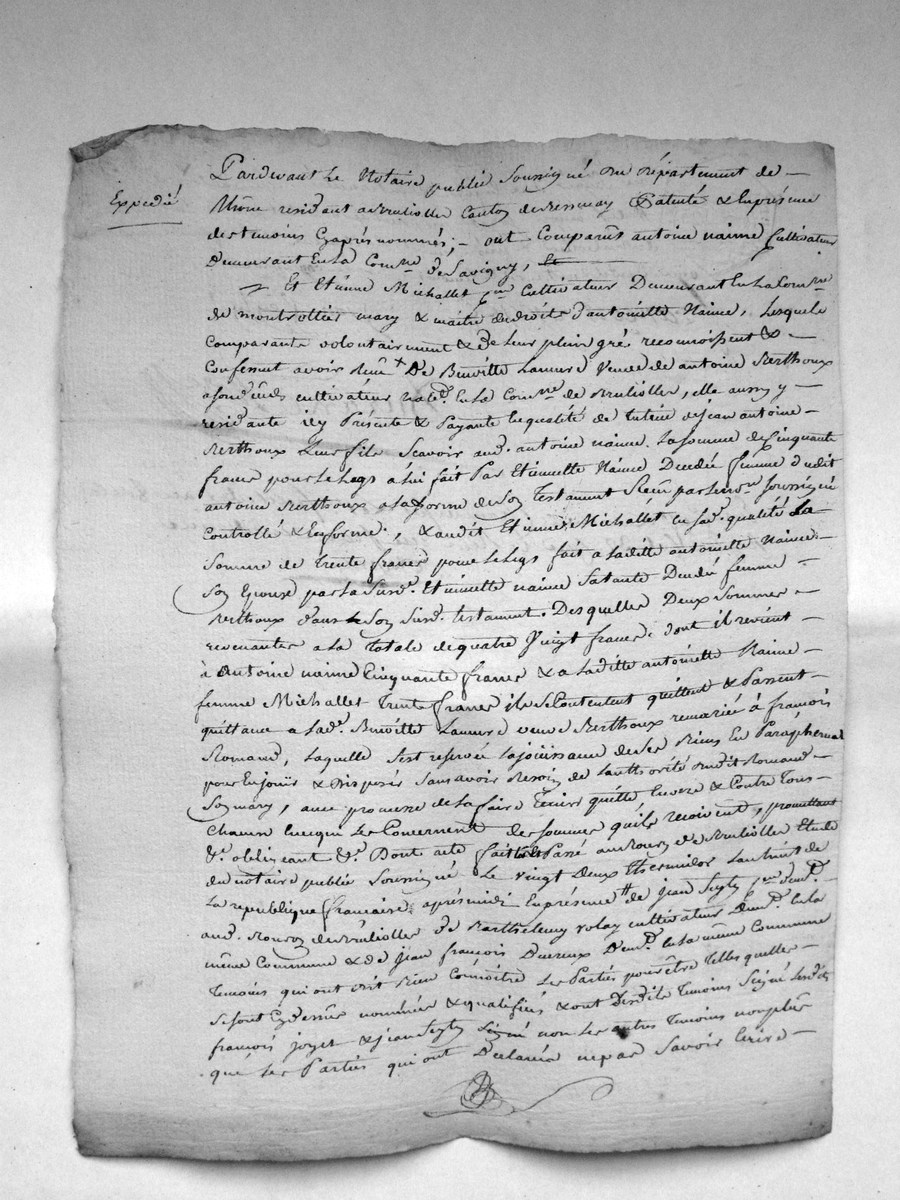 Expedié
Pardevant Le Notaire public Soussigné du département de
Rhône residant a Brullioller Canton de Bessenay Patenté & En présence
des temoins Cy après nommés; ont Comparûs antoine naime Cultivateur
Demeurant En La Com.ne de Savigny,
Et Etienne Michallet Cultivateur Demeurant En La Com.ne
de montrottier mary & maitre des droits d'antoinette Naime, Lesquels
Comparants volontairement & de Leur plein gré reconnoissent &
Confessent avoir Reçu De Benoitte Lamure Veuve de antoine Berthoux
cultivateur En La Com.ne de Brullioller, elle aussy y
residante icy Présente & Payante En qualité de tutrice de jean antoine
Berthoux Leur fils Scavoir aud. antoine naime La Somme de Cinquante
francs pour Le Legs a Lui fait Par Etiennette Naime Decedée femme dudit
antoine Berthoux a La forme de Son Testament Reçu par Le no.re Soussigné
Controllé & En forme, & audit Etienne Michallet En sad. qualité La
Somme de Trente francs pour Le Legs fait a Laditte antoinette Naime
Son Epouse par La Susd. Etiennette naime Sa tante Decedée femme
Berthoux dans Son Susd. testament. Desquelles Deux Sommes
revenantes a La Totale de quatre Vingt francs dont il revient
à Antoine naime Cinquante francs & a Laditte antoinette Naime
femme Michallet Trente francs ils Se Contentent quittent & Passent
quittance a Lad. Benoitte Lamure veuve Berthoux remariée à françois
Romand, Laquelle S'est reservée La joüissance de Ses Biens En Paraphernal
pour En joüir & Disposer Sans avoir Besoin de L'authorité dudit Romand
Son mary, avec promesse de La faire Tenir quitte Envers & Contre Tous
Chacun En ce qui Les Concernent des Sommes qu'ils reçoivent, promettant
&c. obligeant &c. Dont acte fait & Passé au Bourg de Brullioller Etude
du notaire public Soussigné Le vingt Deux thermidor L'an huit de
La republique française après midi En présence de jean
aud. Bourg de Brullioller de Barthelemy volay cultivateur Dem.t En La
même Commune & de jean françois Ducreux Dem.t En La même Commune
Temoins qui ont dit Bien Connoître Les Parties pour être Telles quelles
Se Sont Cy dessus nommées & qualifiées & ont Lesd. Temoins Signé
françois joyet & jean Signé non Les autres Temoins non plus
que Les Parties qui ont Declaré ne pas Savoir Ecrire